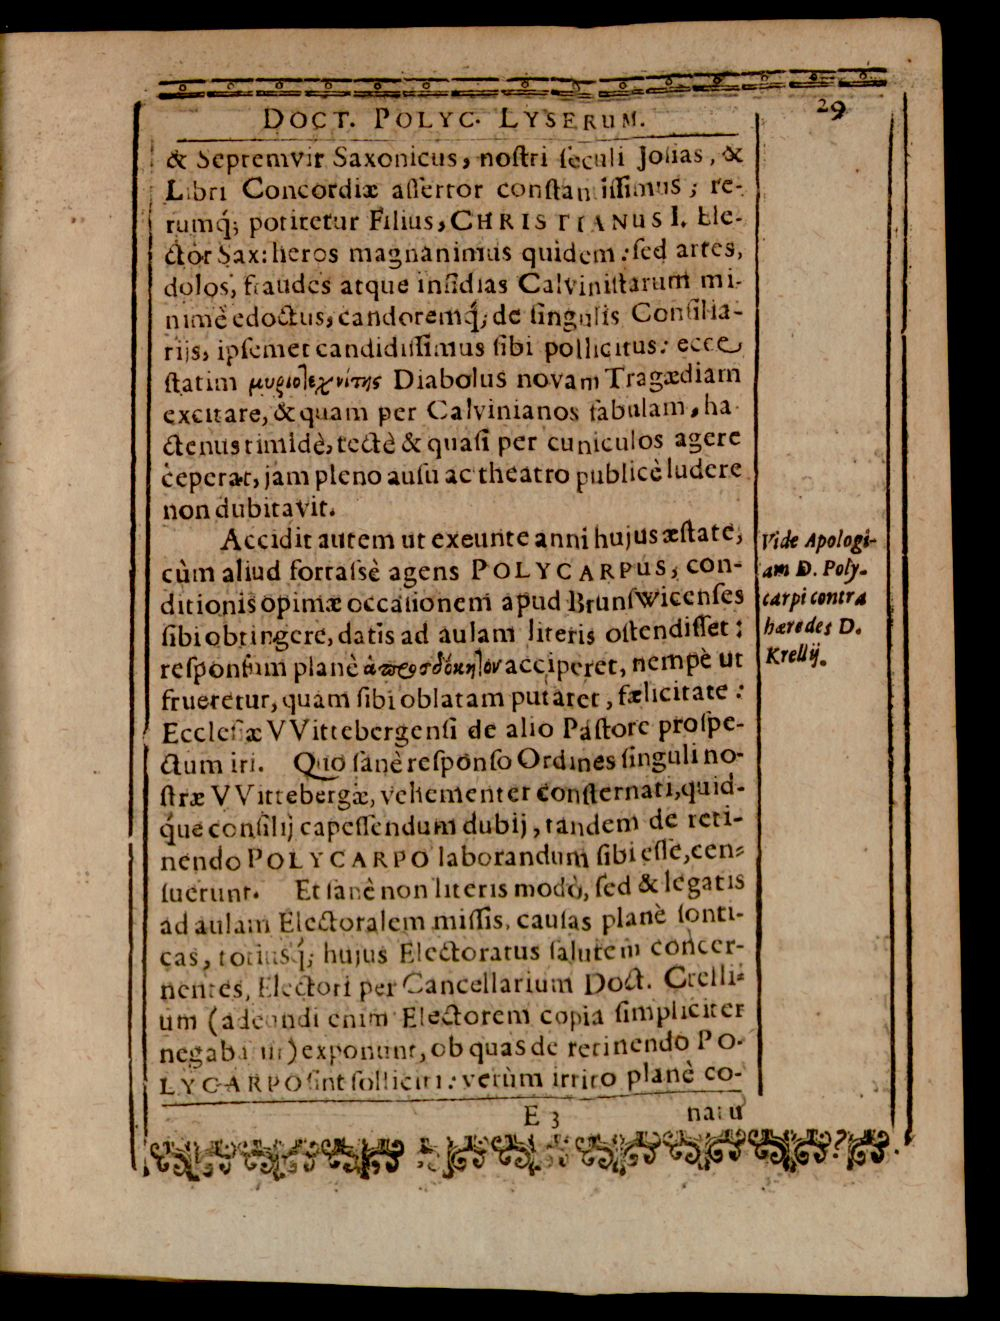 29
DOCT. POLYC. LYSERUM.
& Septemvir Saxonicus, nostri seculi Josias, &
Libri Concordiæ assertor constantissimus; re-
rumq́; potiretur Filius, CHRISTIANUS I. Ele-
ctor Sax: heros magnanimus quidem: sed artes,
dolos, fraudes atque insidias Calvinistarum mi-
nimè edoctus, candoremq́; de singulis Consilia-
rijs, ipsemet candidissimus sibi pollicitus: ecce
statim μυριοτεχνίτης Diabolus novam Tragœdiam
excitare, & quam per Calvinianos fabulam, ha-
ctenus timidè, tectè & quasi per cuniculos agere
cœperat, jam pleno ausu ac theatro publicè ludere
non dubitavit.
Accidit autem ut exeunte anni hujus æstate,
cùm aliud fortassè agens POLYCARPUS, con-
ditionis opimæ occasionem apud Brunswicenses
sibi obtingere, datis ad aulam literis ostendisset:
responsum planè ἀπροσδόκητον acciperet, nempè ut
frueretur, quam sibi oblatam putaret, fælicitate:
Ecclesiæ VVittebergensi de alio Pastore prospe-
ctum iri. Quo sanè responso Ordines singuli no-
stræ VVittebergæ, vehementer consternati, quid-
q́ue consilij capessendum dubij, tandem de reti-
nendo POLYCARPO laborandum sibi esse, cen-
suerunt. Et sanè non literis modò, sed & legatis
ad aulam Electoralem missis, causas planè sonti-
cas, totiusq́; hujus Electoratus salutem concer-
nentes, Electori per Cancellarium Doct. Crelli-
um (adeundi enim Electorem copia simpliciter
negabatur) exponunt, ob quas de retinendo PO-
LYCARPO sint solliciti: verùm irrito planè co-
E 3 natu
Vide Apologi-
am D. Poly-
carpi contra
hæredes D.
Krellij.